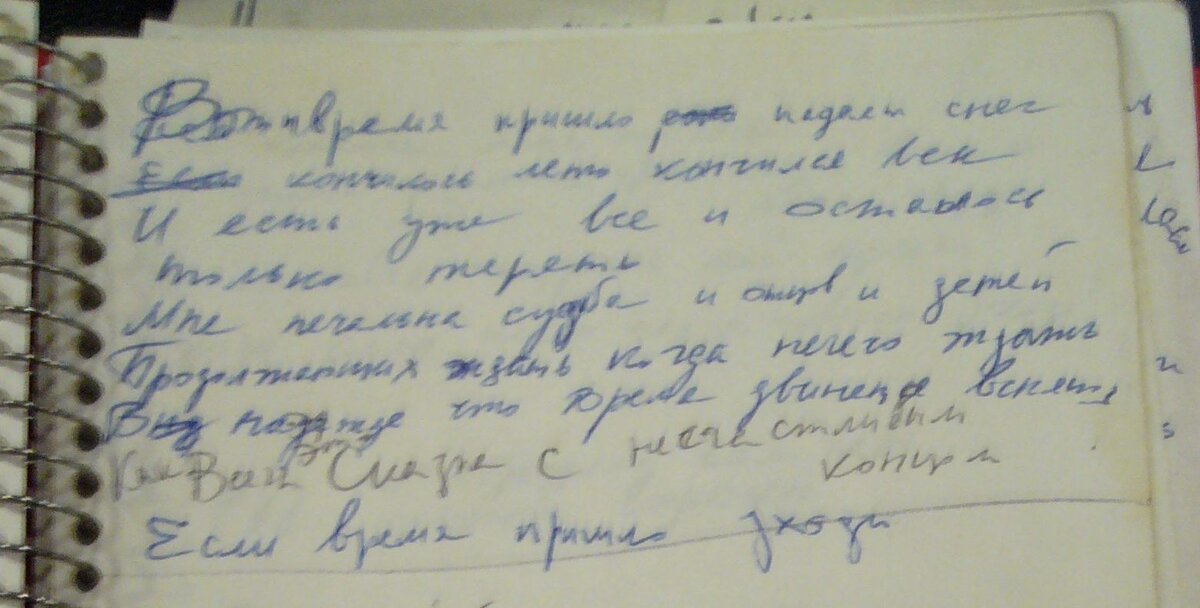 Вот и время пришло падает снег
кончилось лето кончился век
И есть уже все и осталось
только терять
Мне печальна судьба и отцов и детей
Продолжающих ждать когда нечего ждать
В надежде что время двинется вспять
Как Вам эта Сказка с несчастливым
концом
Если время пришло уходи